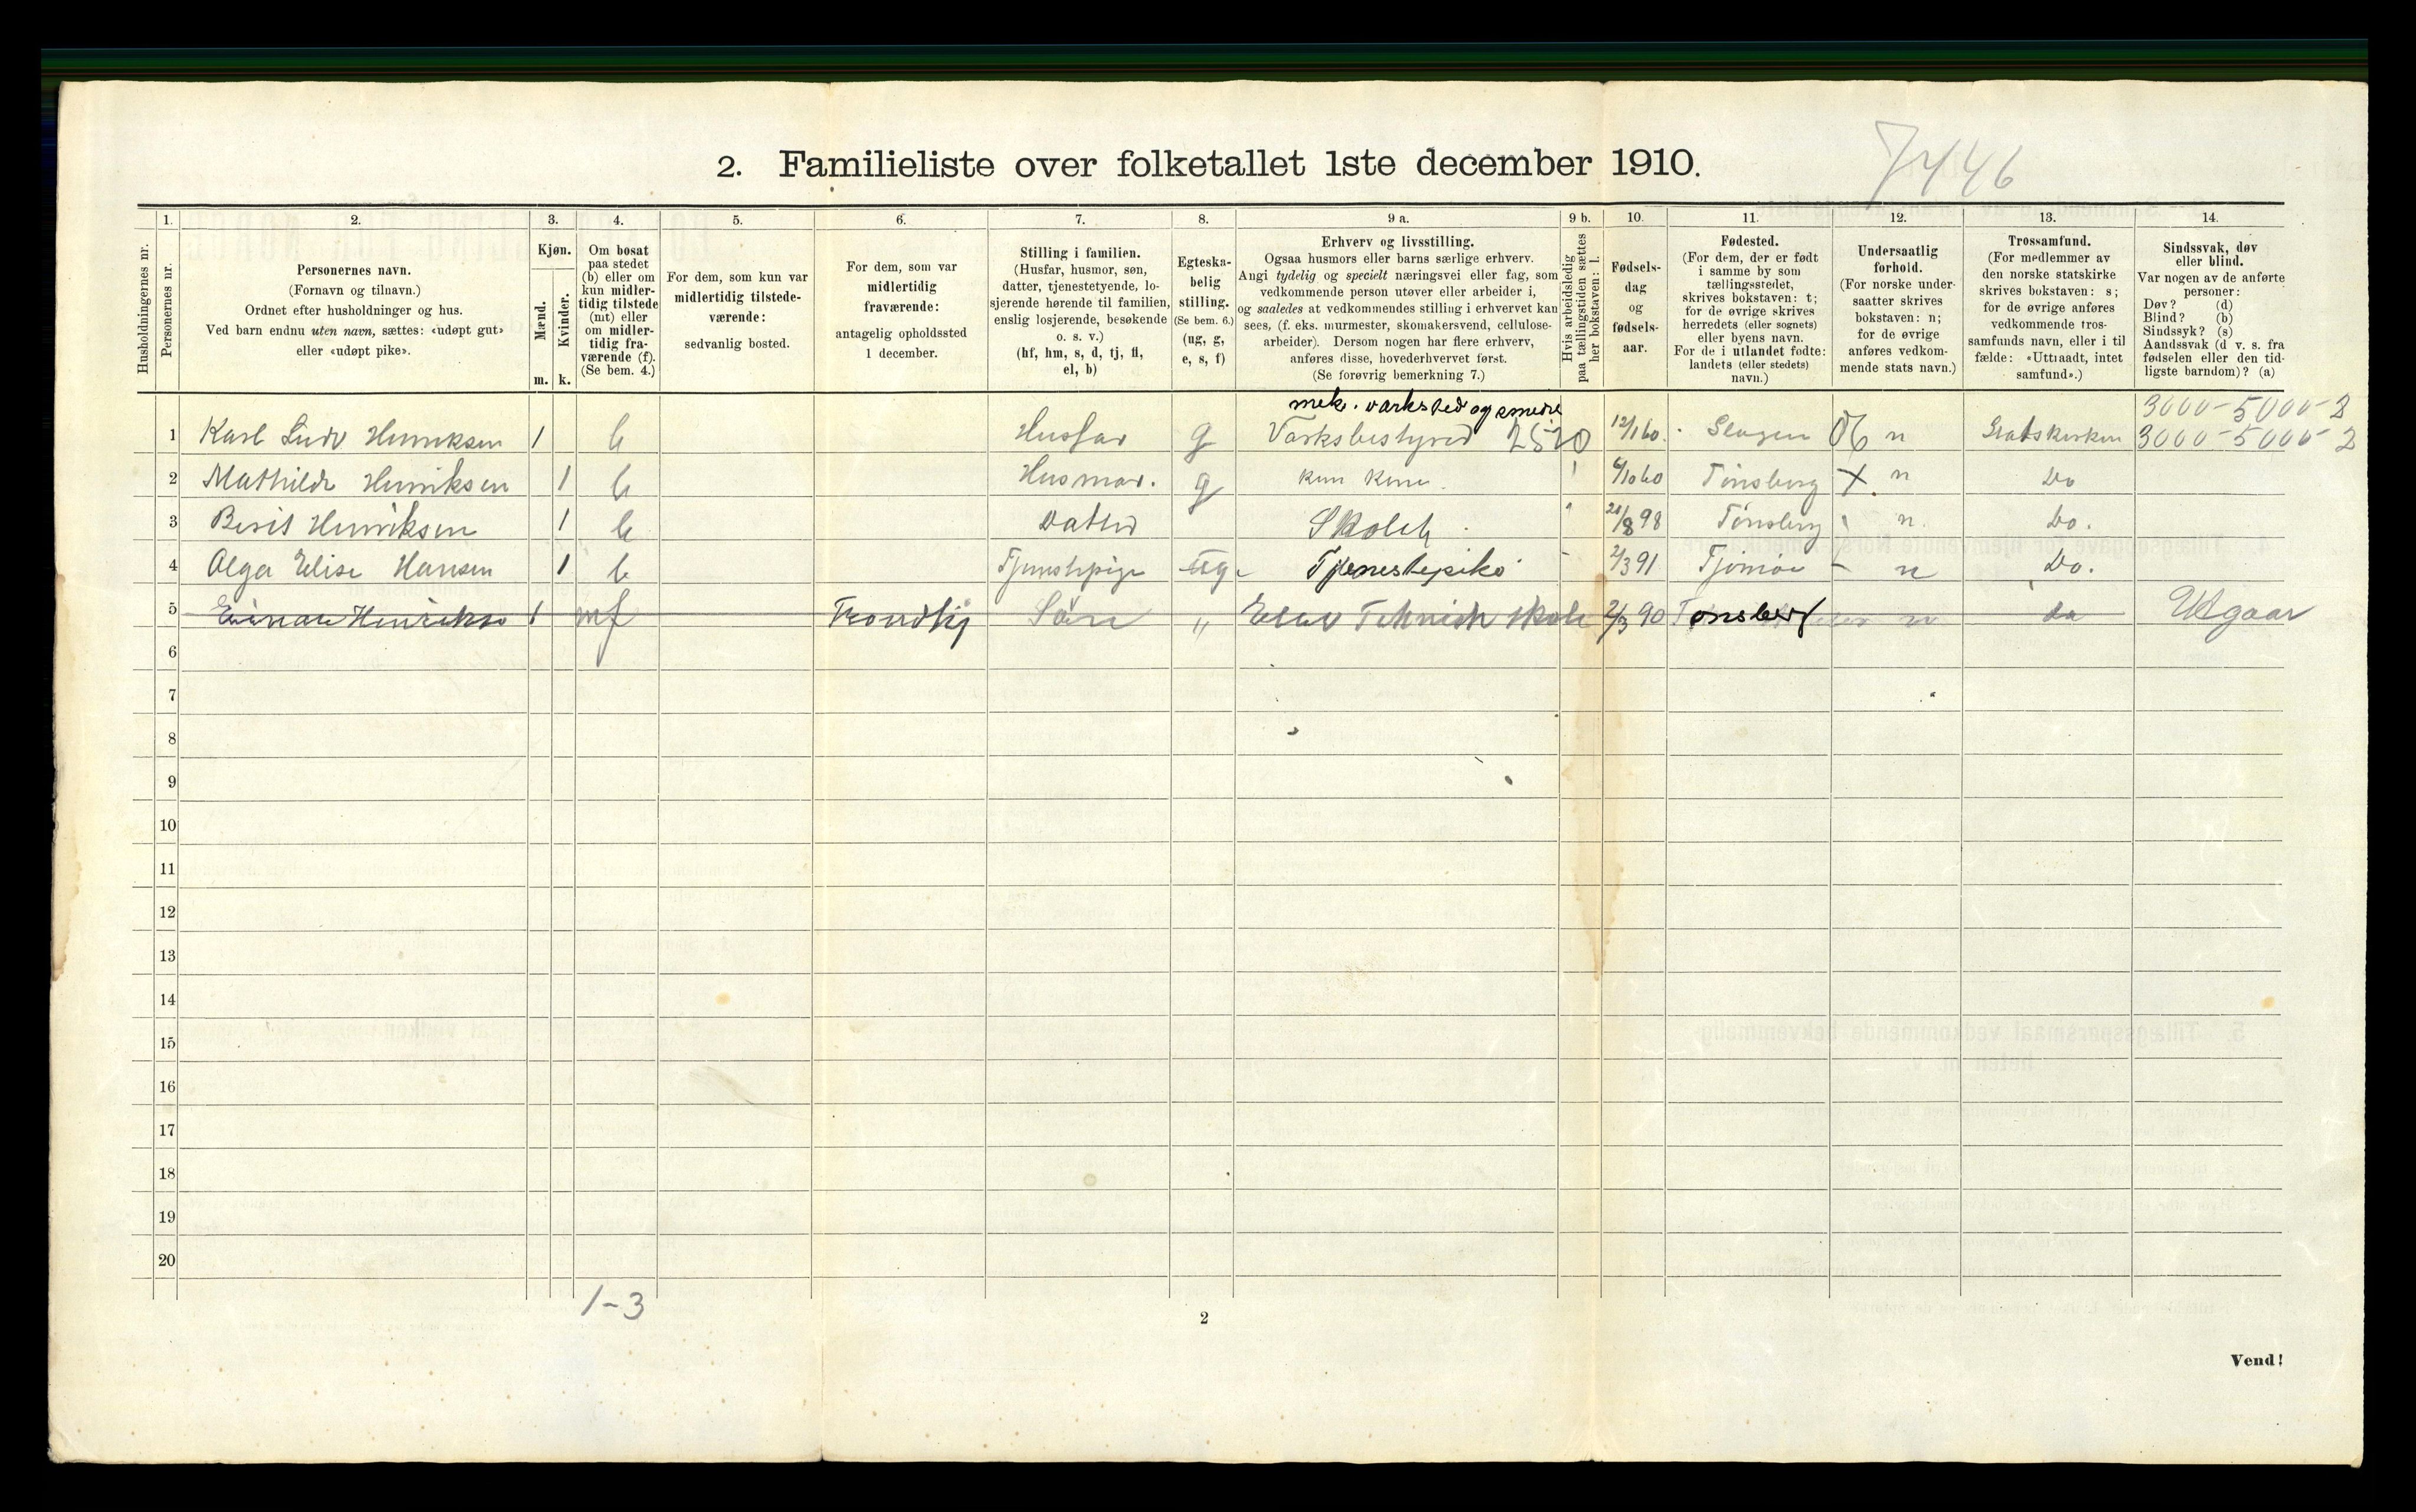 7446
2. Familieliste over folketallet 1ste december 1910.
Husholdningernes nr.
1. Personernes nr.
2. Personernes navn. (Fornavn og tilnavn.) Ordnet efter husholdninger og hus. Ved barn endnu uten navn, sættes: «udøpt gut» eller «udøpt pike».
3. Kjøn. Mænd. m. Kvinder. k.
4. Om bosat paa stedet (b) eller om kun midlertidig tilstede (mt) eller om midlertidig fraværende (f). (Se bem. 4.)
5. For dem, som kun var midlertidig tilstedeværende: sedvanlig bosted.
6. For dem, som var midlertidig fraværende: antagelig opholdssted 1 december.
7. Stilling i familien. (Husfar, husmor, søn, datter, tjenestetyende, losjerende hørende til familien, enslig losjerende, besøkende o. s. v.) (hf, hm, s, d, tj, fl, el, b)
8. Egteskabelig stilling. (Se bem. 6.) (ug, g, e, s, f)
9 a. Erhverv og livsstilling. Ogsaa husmors eller barns særlige erhverv. Angi tydelig og specielt næringsvei eller fag, som vedkommende person utøver eller arbeider i, og saaledes at vedkommendes stilling i erhvervet kan sees, (f. eks. murmester, skomakersvend, cellulosearbeider). Dersom nogen har flere erhverv, anføres disse, hovederhvervet først. (Se forøvrig bemerkning 7.)
9 b. Hvis arbeidsledig paa tællingstiden sættes her bokstaven: l.
10. Fødselsdag og fødselsaar.
11. Fødested. (For dem, der er født i samme by som tællingsstedet, skrives bokstaven: t; for de øvrige skrives herredets (eller sognets) eller byens navn. For de i utlandet fødte: landets (eller stedets) navn.)
12. Undersaatlig forhold. (For norske undersaatter skrives bokstaven: n; for de øvrige anføres vedkommende stats navn.)
13. Trossamfund. (For medlemmer av den norske statskirke skrives bokstaven: s; for de øvrige anføres vedkommende trossamfunds navn, eller i tilfælde: «Uttraadt, intet samfund».)
14. Sindssvak, døv eller blind. Var nogen av de anførte personer: Døv? (d) Blind? (b) Sindssyk? (s) Aandssvak (d v. s. fra fødselen eller den tidligste barndom)? (a)
mek. værksted og smedie 3000-5000-2
1 Karl Ludv Henriksen 1 b Husfar g Værksbestyrer 2520 12/1 60. Slagen 06 n Statskirken 3000-5000-2
2 Mathilde Henriksen 1 b Husmor. g kun kone 6/10 60 Tønsberg X. n Do
3 Berit Henriksen 1 b Datter Skoleh 21/8 98 Tønsberg n. Do.
4 Olga Elise Hansen 1 b Tjenestepige ug. Tjenestepike 2/3 91 Tjömöe - n Do.
5 Einar Henrikse 1 mf Trondhj Sön " Elev Teknisk skole 2/3 90 Tønsberg n do Utgaar
6
7
8
9
10
11
12
13
14
15
16
17
18
19
20
1-3
2
Vend!